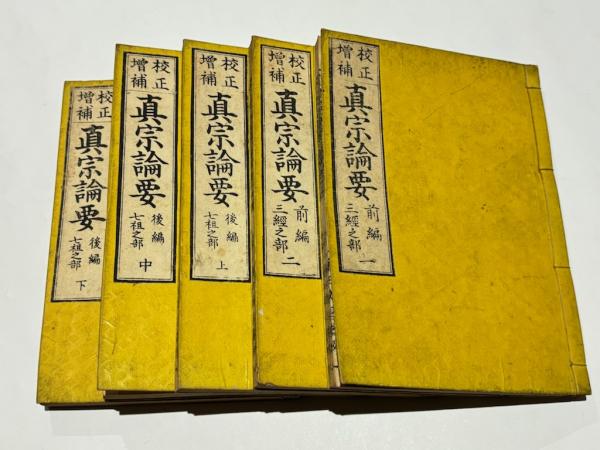 校正
增補
真宗論要
前編
三經之部
一
校正
增補
真宗論要
前編
三經之部
二
校正
增補
真宗論要
後編
七祖之部
上
校正
增補
真宗論要
後編
七祖之部
中
校正
增補
真宗論要
後編
七祖之部
下